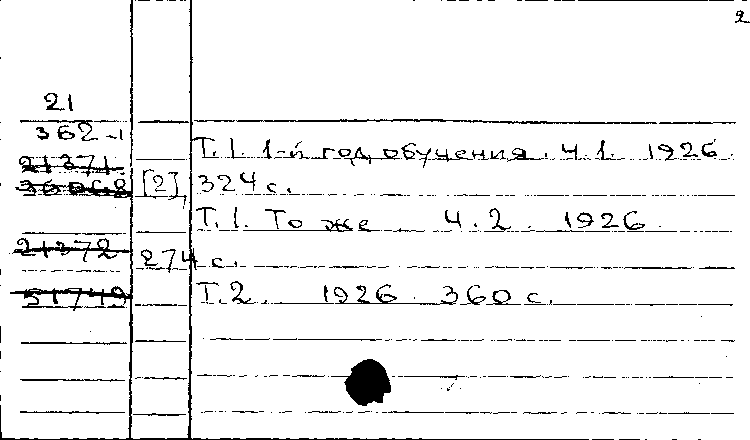 2
21
362-1
21371 Т.1. 1-й год обучения. Ч.1. 1926.
[2], 324 с.
Т.1. То же Ч.2. 1926.
21372 274 с.
51749 Т.2. 1926. 360 с.